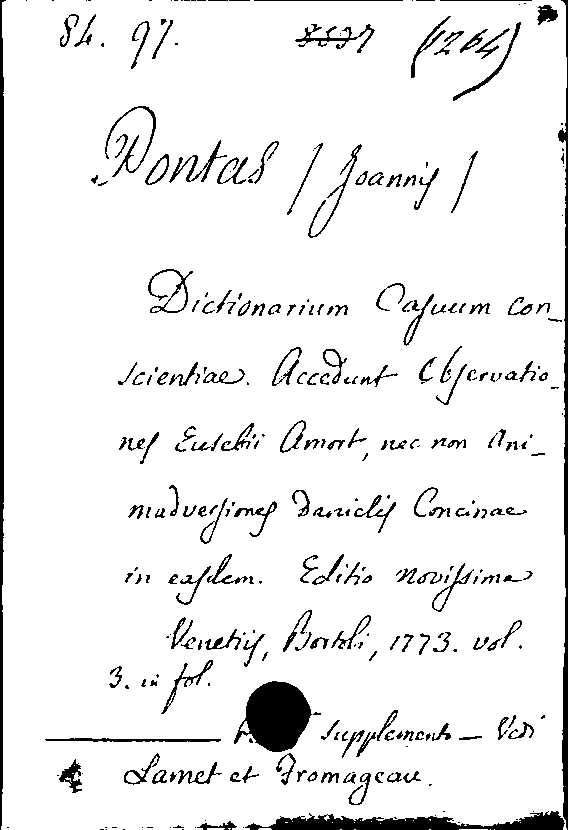 84. 97. (1264)
Pontas / Joannis /
Dictionarium Casuum con_
scientiae. Accedunt Observatio_
nes Eusebii Amort, nec non Ani_
madversiones Danielis Concinae
in easdem. Editio novissima
Venetiis, Bortoli, 1773. vol.
3. in fol.
supplemento — Vedi
Lamet et Fromageau.